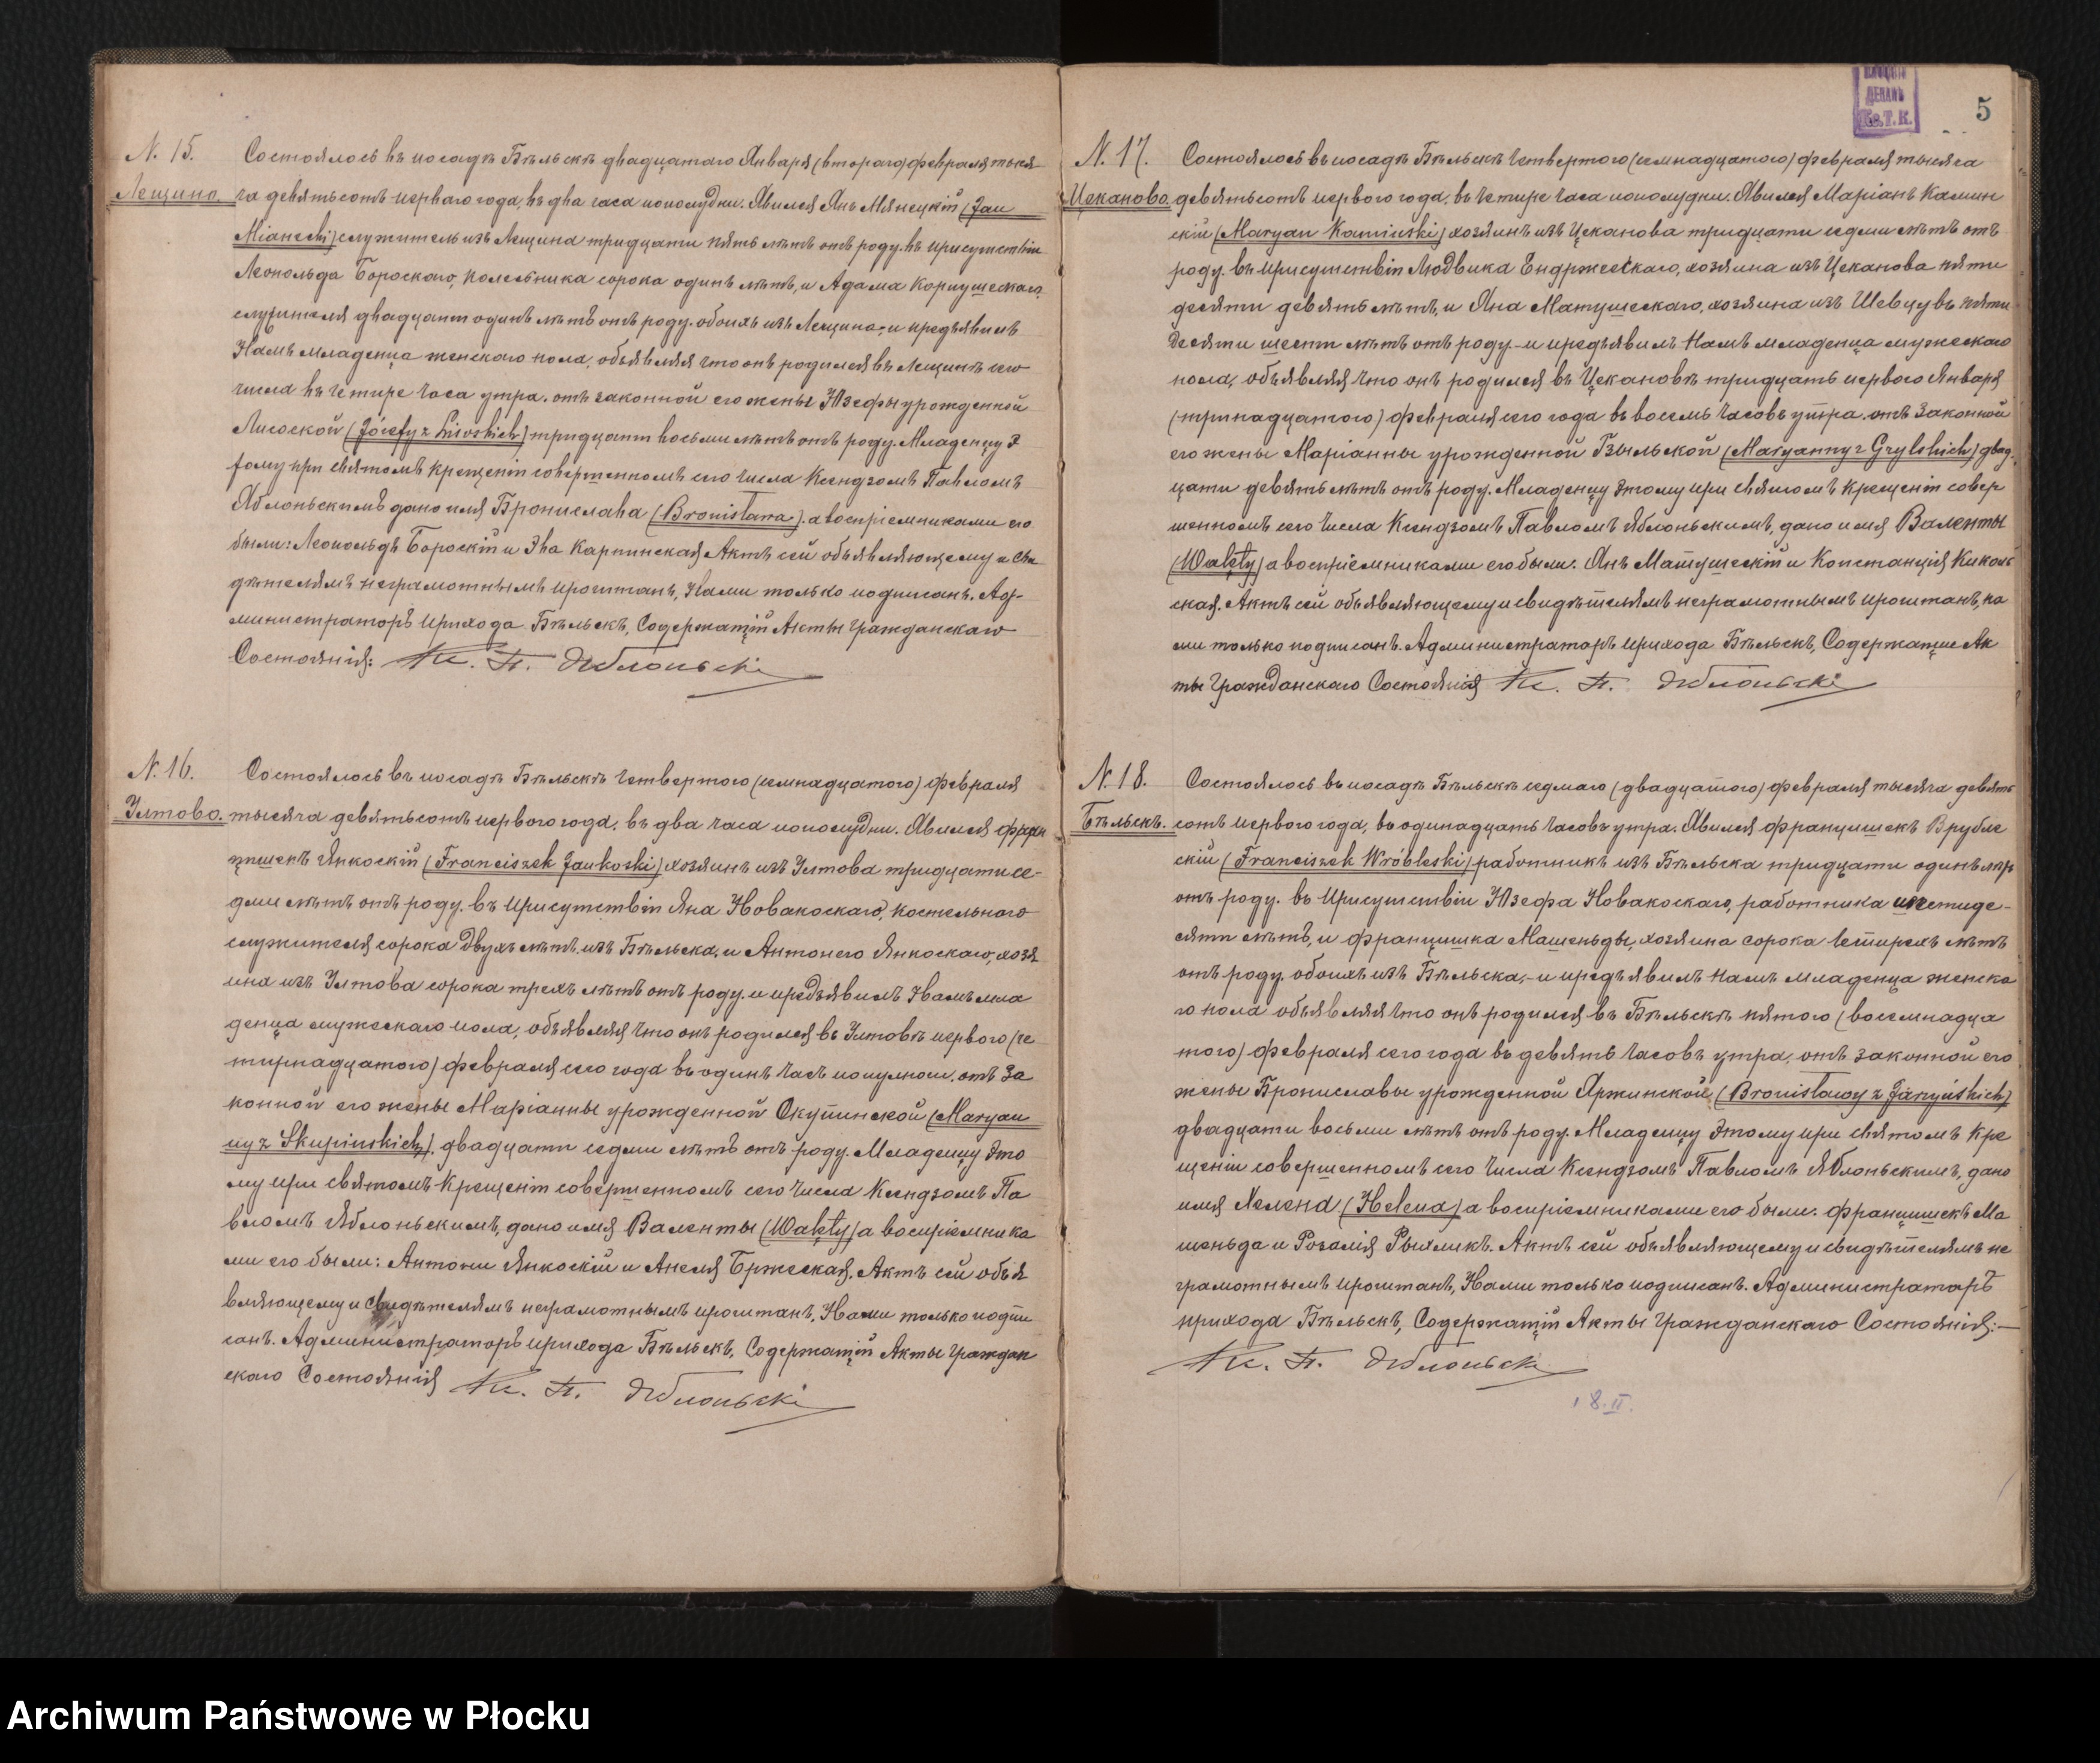 N. 15.
Лещино.
Состоялось въ посадѣ Бѣльскѣ двадцатаго Января (втораго) февраля тыся
ча девятьсотъ перваго года, въ два часа пополудни. Явился Янъ Мянецкій (Jan
Mianecki) служитель изъ Лещина тридцати пять лѣтъ отъ роду. въ присутствіи
Леопольда Бороскаго, колесника сорока одинъ лѣтъ, и Адама Корнушескаго,
служителя двадцати одинъ лѣтъ отъ роду. обоихъ изъ Лещина, и предъявилъ
Намъ младенца женскаго пола, объявляя что онъ родился въ Лещинѣ сего
числа въ четыре часа утра. отъ законной его жены Юзефы урожденной
Лисоской (Józefy z Lisoskich) тридцати восьми лѣтъ отъ роду. Младенцу э
тому при святомъ крещеніи совершенномъ сего числа Ксендзомъ Павломъ
Яблоньскимъ дано имя Брониславa (Bronisława). а воспріемниками его
были: Леопольдъ Бороскій и Эва Карпинская Актъ сей объявляющему и Сви
дѣтелямъ неграмотнымъ прочитанъ, Нами только подписанъ. Ад-
министраторъ прихода Бѣльскъ, Содержащій Акты Гражданскаго
Состоянія: Кс. П. Яблоньскі
N. 16.
Ултово.
Состоялось въ посадѣ Бѣльскѣ четвертого (семнадцатого) февраля
тысяча девятьсотъ первого года, въ два часа пополудни. Явился Фран
цишекъ Янкоскій (Franciszek Jankoski) хозяинъ изъ Ултова тридцати се-
дми лѣтъ отъ роду. въ присутствіи Яна Новакоскаго, костельного
служителя сорока двухъ лѣтъ. изъ Бѣльска, и Антонего Янкоскаго, хозя
ина изъ Ултова сорока трехъ лѣтъ отъ роду. и предъявилъ Намъ мла
денца мужескаго пола, объявляя что онъ родился въ Ултовѣ первого (че
тырнадцатого) февраля сего года въ одинъ часъ полуночи. отъ за
конной его жены Маріанны урожденной Скупинской (Maryan
ny z Skupinskich). двадцати седми лѣтъ отъ роду. Младенцу это
му при святомъ Крещеніи совершенномъ сего числа Ксендзомъ Па
вломъ Яблоньскимъ, дано имя Валенты (Walęty) а воспріемника
ми его были: Антони Янкоскій и Анеля Бржеская. Актъ сей объя
вляющему и Свидѣтелямъ неграмотнымъ прочитанъ, Нами только подпи
санъ. Администраторъ прихода Бѣльскъ, Содержащій Акты Граждан
скаго Состоянія Кс. П. Яблоньскі
5
ДЕКАНЪ
Кс. Т. К.
N. 17.
Цеканово.
Состоялось въ посадѣ Бѣльскѣ четвертого (семнадцатого) февраля тысяча
девятьсотъ первого года, въ четыре часа пополудни. Явился Маріанъ Камин
скій (Maryan Kamiński) хозяинъ изъ Цеканова тридцати седми лѣтъ отъ
роду. въ присутствіи Людвика Ендржескаго, хозяина изъ Цеканова пяти
десяти девять лѣтъ, и Яна Матушескаго, хозяина изъ Шевцувъ пяти
десяти шести лѣтъ отъ роду и предъявилъ Намъ младенца мужескаго
пола, объявляя что онъ родился въ Цекановѣ тридцать первого Января
(тринадцатого) февраля сего года въ восемь часовъ утра. отъ законной
его жены Маріанны урожденной Гзыльской (Maryanny z Grylskich) двад-
цати девять лѣтъ отъ роду. Младенцу этому при святомъ Крещеніи совер
шенномъ сего числа Ксендзомъ Павломъ Яблоньскимъ, дано имя Валенты
(Walęty) а воспріемниками его были. Янъ Матушескій и Констанція Киколь
ская. Актъ сей объявляющему и свидѣтелямъ неграмотнымъ прочитанъ, на
ми только подписанъ. Администраторъ прихода Бѣльскъ, Содержащіе Ак
ты Гражданскаго Состоянія Кс. П. Яблоньскі
N. 18.
Бѣльскъ.
Состоялось въ посадѣ Бѣльскѣ седмаго (двадцатого) февраля тысяча девять
сотъ первого года, во одинадцать часовъ утра. Явился Францишекъ Врубле
скій (Franciszek Wróbleski) работникъ изъ Бѣльска тридцати одинъ лѣт
отъ роду. въ присутствіи Юзефа Новакоскаго, работника шестиде-
сяти лѣтъ, и Францишка Машеньды, хозяина сорока четырехъ лѣтъ
отъ роду. обоихъ изъ Бѣльска, и предъявилъ намъ младенца женска
го пола объявляя что онъ родился въ Бѣльскѣ пятого (восемнадца
того) февраля сего года въ девять часовъ утра, отъ законной его
жены Брониславы урожденной Яржинской, (Bronisławy z Jarzyńskich)
двадцати восьми лѣтъ отъ роду. Младенцу этому при святомъ Кре
щеніи совершенномъ сего числа Ксендзомъ Павломъ Яблоньскимъ, дано
имя Хелена (Helena) а воспріемниками его были: Францишекъ Ма
шеньда и Розалія Рыхликъ. Актъ сей объявляющему и свидѣтелямъ не
грамотнымъ прочитанъ, Нами только подписанъ. Администраторъ
прихода Бѣльскъ, Содержащій Акты Гражданскаго Состоянія:—
Кс. П. Яблоньскі
18.II.
Archiwum Państwowe w Płocku